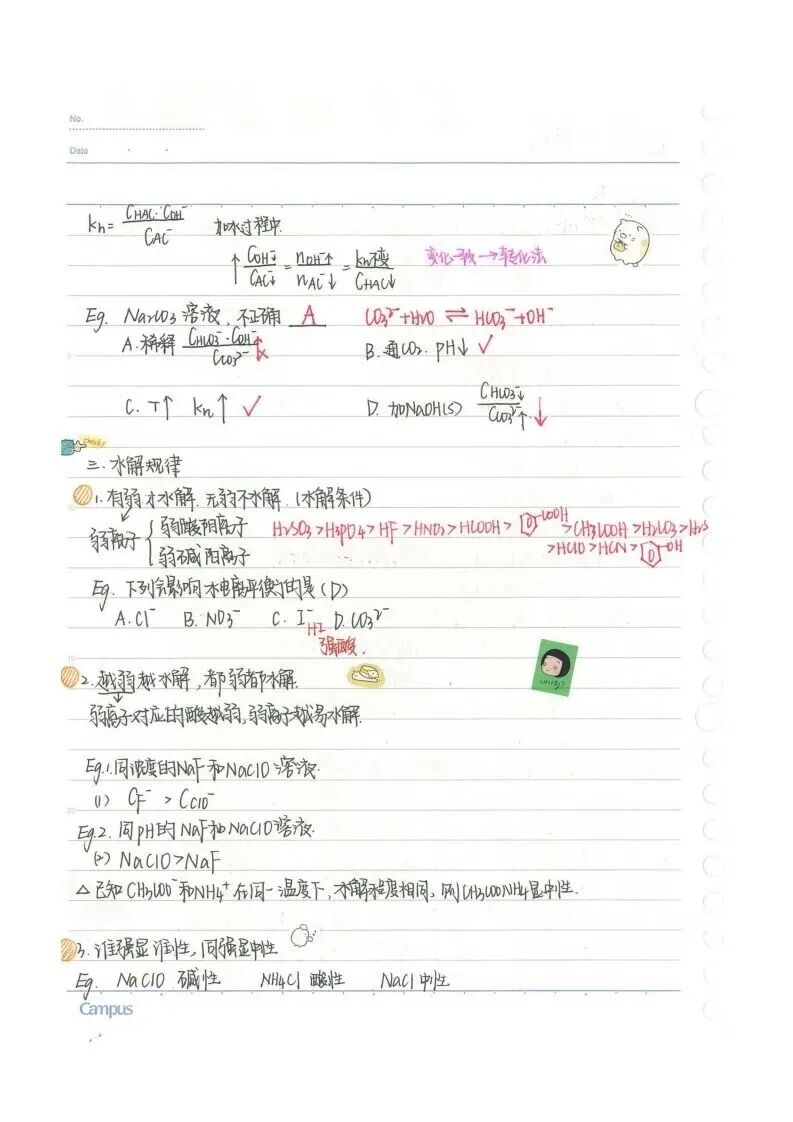 No.
Date
kh= CHAC·COH⁻ / CAC⁻ 加水过程中.
↑ COH⁻↓ / CAC⁻↓ = nOH⁻↑ / nAC⁻↓ = kh不变 / CHAC↓ 变化一致→转化法
Eg. Na2CO3溶液, 不正确 A CO3²⁻+H2O ⇌ HCO3⁻+OH⁻
A.稀释 CHCO3⁻·COH⁻ / CCO3²⁻ ↑× B.通CO2. pH↓ ✓
C. T↑ kh↑ ✓ D. 加NaOH(s) CHCO3⁻↓ / CCO3²⁻↑ ↓
三.水解规律
1.有弱才水解.无弱不水解.(水解条件)
弱离子 { 弱酸阴离子 H2SO3>H3PO4>HF>HNO2>HCOOH> COOH >CH3COOH>H2CO3>H2S
弱碱阳离子 >HClO>HCN> OH
Eg. 下列会影响水电离平衡的是(D)
A.Cl⁻ B. NO3⁻ C. I⁻ D.CO3²⁻
HI
强酸.
2.越弱越水解,都弱都水解.
弱离子对应的酸越弱,弱离子越易水解.
Eg.1.同浓度的NaF和NaClO溶液.
(1) CF⁻ > CClO⁻
Eg.2. 同pH的NaF和NaClO溶液.
(2) NaClO>NaF
△已知CH3COO⁻和NH4⁺在同一温度下,水解程度相同,则CH3COONH4显中性.
3.谁强显谁性,同强显中性
Eg. NaClO 碱性 NH4Cl 酸性 NaCl 中性
Campus